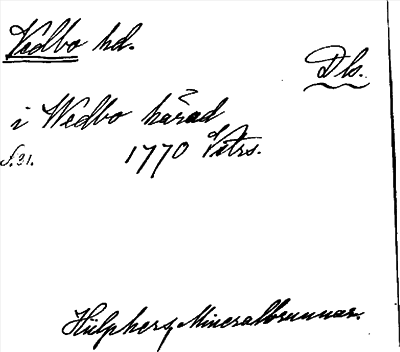 Vedbo hd.
Dls.
i Wedbo härad
s. 31. 1770 Vetrs.
Hülphers, Mineralbrunnar.